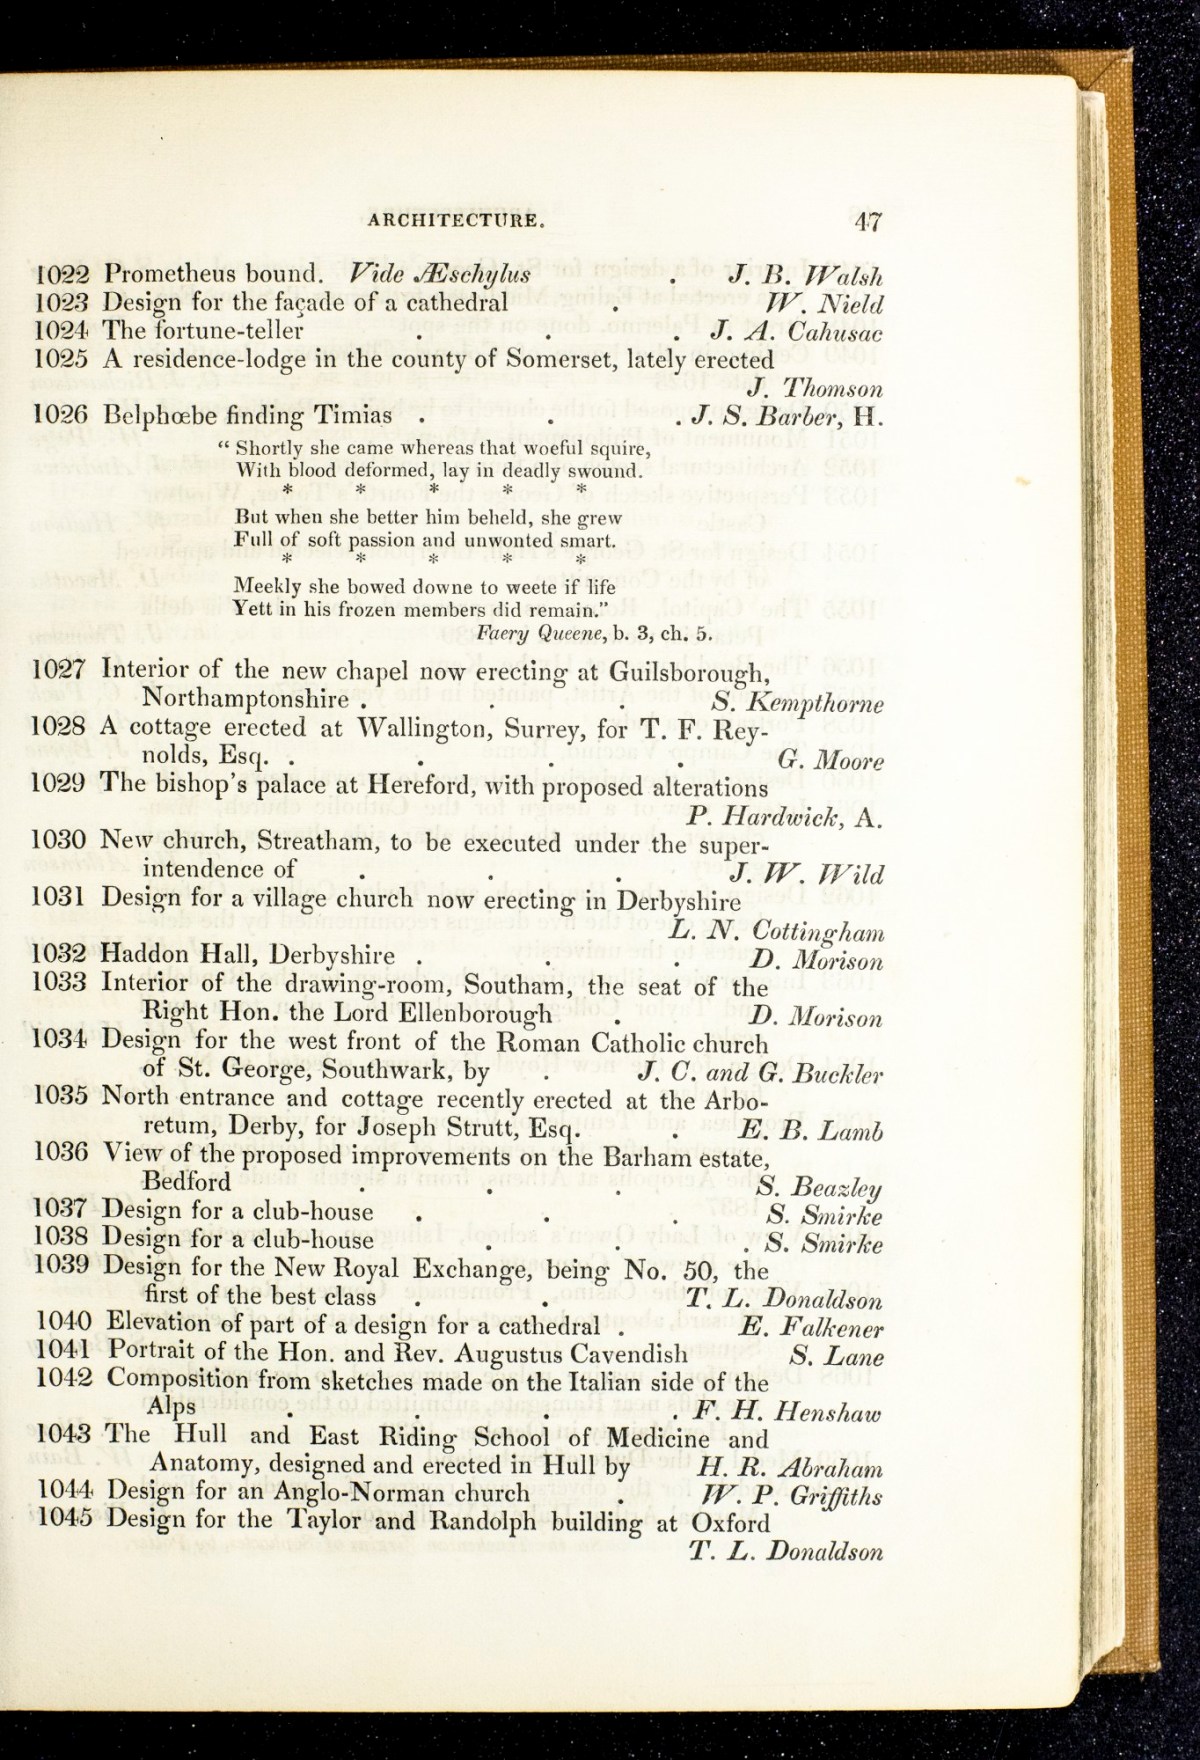 ARCHITECTURE. 47
1022 Prometheus bound. Vide Æschylus . J. B. Walsh
1023 Design for the façade of a cathedral . W. Nield
1024 The fortune-teller . . . J. A. Cahusac
1025 A residence-lodge in the county of Somerset, lately erected
J. Thomson
1026 Belphœbe finding Timias . . . J. S. Barber, H.
“ Shortly she came whereas that woeful squire,
With blood deformed, lay in deadly swound.
* * * * *
But when she better him beheld, she grew
Full of soft passion and unwonted smart.
* * * * *
Meekly she bowed downe to weete if life
Yett in his frozen members did remain.”
Faery Queene, b. 3, ch. 5.
1027 Interior of the new chapel now erecting at Guilsborough,
Northamptonshire . . . S. Kempthorne
1028 A cottage erected at Wallington, Surrey, for T. F. Rey-
nolds, Esq. . . . . G. Moore
1029 The bishop’s palace at Hereford, with proposed alterations
P. Hardwick, A.
1030 New church, Streatham, to be executed under the super-
intendence of . . . J. W. Wild
1031 Design for a village church now erecting in Derbyshire
L. N. Cottingham
1032 Haddon Hall, Derbyshire . . . D. Morison
1033 Interior of the drawing-room, Southam, the seat of the
Right Hon. the Lord Ellenborough . D. Morison
1034 Design for the west front of the Roman Catholic church
of St. George, Southwark, by . J. C. and G. Buckler
1035 North entrance and cottage recently erected at the Arbo-
retum, Derby, for Joseph Strutt, Esq. . E. B. Lamb
1036 View of the proposed improvements on the Barham estate,
Bedford . . . S. Beazley
1037 Design for a club-house . . . S. Smirke
1038 Design for a club-house . . . S. Smirke
1039 Design for the New Royal Exchange, being No. 50, the
first of the best class . . T. L. Donaldson
1040 Elevation of part of a design for a cathedral . E. Falkener
1041 Portrait of the Hon. and Rev. Augustus Cavendish S. Lane
1042 Composition from sketches made on the Italian side of the
Alps . . . . F. H. Henshaw
1043 The Hull and East Riding School of Medicine and
Anatomy, designed and erected in Hull by H. R. Abraham
1044 Design for an Anglo-Norman church . W. P. Griffiths
1045 Design for the Taylor and Randolph building at Oxford
T. L. Donaldson